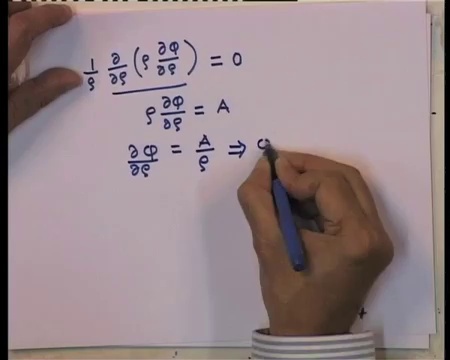 1/ρ ∂/∂ρ (ρ ∂φ/∂ρ) = 0
ρ ∂φ/∂ρ = A
∂φ/∂ρ = A/ρ ⇒